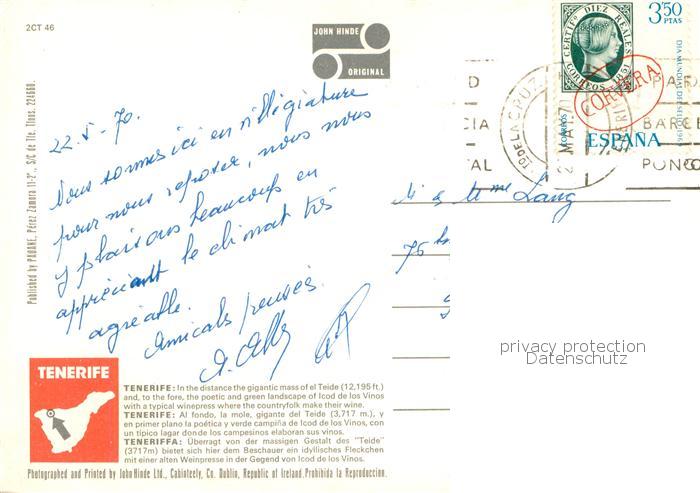 2CT 46
JOHN HINDE
ORIGINAL
3,50
PTAS
CERTIFDO DIEZ REALES
CORREOS 1851
CORVERA
DIA MUNDIAL DEL SELLO 1967
CORREOS
ESPAÑA
BARCE
PONGA
22.5-70.
Nous sommes ici en villégiature
pour nous reposer, nous nous
y plaisons beaucoup en
appréciant le climat très
agréable.
Amicales pensées.
M & Mme Lang
75
privacy protection
Datenschutz
Published by PADANE, Pérez Zamora 11-2º., S/C de Tfe. Tfnos. 224660.
TENERIFE
TENERIFE: In the distance the gigantic mass of el Teide (12,195 ft.)
and, to the fore, the poetic and green landscape of Icod de los Vinos
with a typical winepress where the countryfolk make their wine.
TENERIFE: Al fondo, la mole, gigante del Teide (3,717 m.), y
en primer plano la poética y verde campiña de Icod de los Vinos, con
un típico lagar donde los campesinos elaboran sus vinos.
TENERIFFA: Überragt von der massigen Gestalt des "Teide"
(3717m) bietet sich hier dem Beschauer ein idyllisches Fleckchen
mit einer alten Weinpresse in der Gegend von Icod de los Vinos.
Photographed and Printed by John Hinde Ltd., Cabinteely, Co. Dublin, Republic of Ireland. Prohibida la Reproduccion.